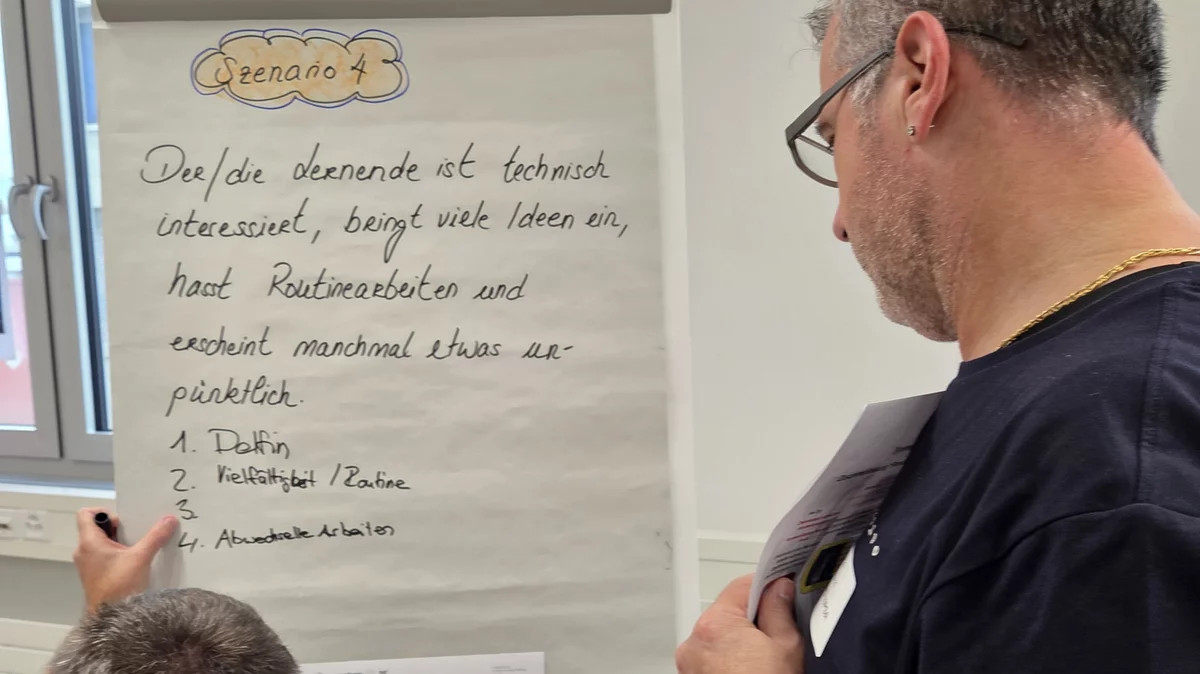 Szenario 4
Der/die Lernende ist technisch
interessiert, bringt viele Ideen ein,
hasst Routinearbeiten und
erscheint manchmal etwas un-
pünktlich.
1. Delfin
2. Vielfältigkeit / Routine
3
4. Abwechselle Arbeiten